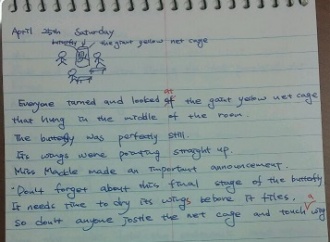 April 25th Saturday
butterfly the giant yellow net cage
Everyone turned and looked at the gaint yellow net cage
that hung in the middle of the room.
The butterfly was perfectly still.
Its wings were pointing straight up.
Miss Mackle made an important announcement.
"Don't forget about this final stage of the butterfly
It needs time to dry its wings before it flies.
So don't anyone jostle the net cage and touch